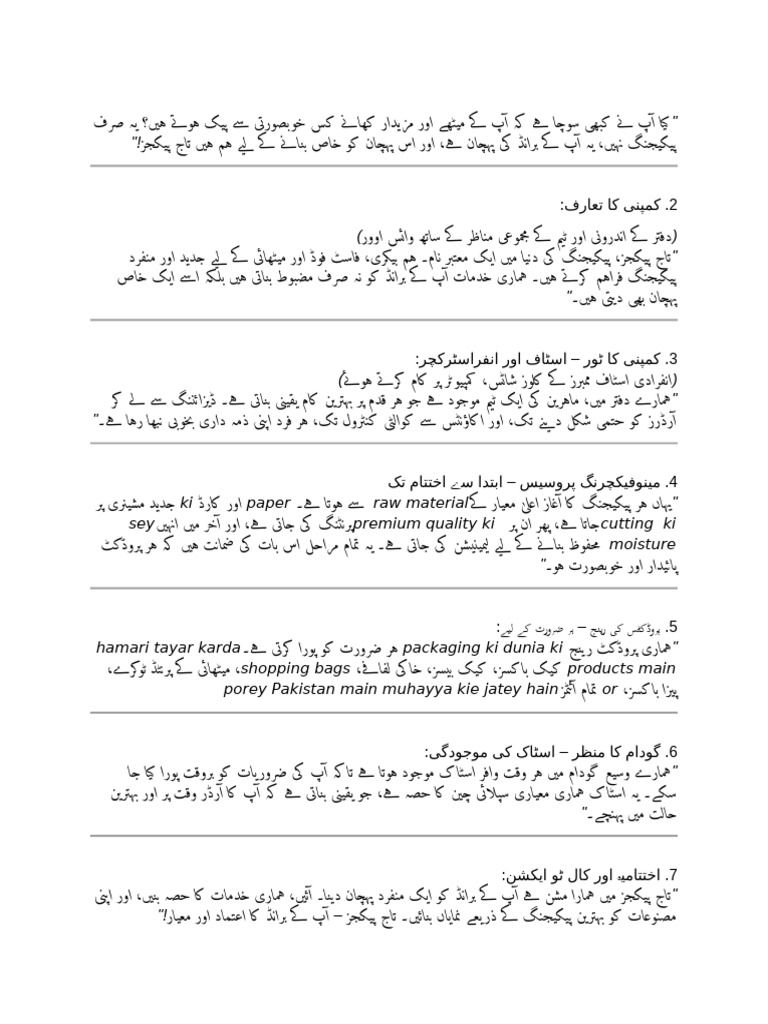 "کیا آپ نے کبھی سوچا ہے کہ آپ کے میٹھے اور مزیدار کھانے کس خوبصورتی سے پیک ہوتے ہیں؟ یہ صرف
پیکیجنگ نہیں، یہ آپ کے برانڈ کی پہچان ہے، اور اس پہچان کو خاص بنانے کے لیے ہم ہیں تاج پیکجز!"
2. کمپنی کا تعارف:
(دفتر کے اندرونی اور ٹیم کے مجموعی مناظر کے ساتھ وائس اوور)
"تاج پیکجز، پیکیجنگ کی دنیا میں ایک معتبر نام۔ ہم بیکری، فاسٹ فوڈ اور میٹھائی کے لیے جدید اور منفرد
پیکیجنگ فراہم کرتے ہیں۔ ہماری خدمات آپ کے برانڈ کو نہ صرف مضبوط بناتی ہیں بلکہ اسے ایک خاص
پہچان بھی دیتی ہیں۔"
3. کمپنی کا ٹور – اسٹاف اور انفراسٹرکچر:
(انفرادی اسٹاف ممبرز کے کلوز شاٹس، کمپیوٹر پر کام کرتے ہوئے)
"ہمارے دفتر میں، ماہرین کی ایک ٹیم موجود ہے جو ہر قدم پر بہترین کام یقینی بناتی ہے۔ ڈیزائننگ سے لے کر
آرڈرز کو حتمی شکل دینے تک، اور اکاؤنٹس سے کوالٹی کنٹرول تک، ہر فرد اپنی ذمہ داری بخوبی نبھا رہا ہے۔"
4. مینوفیکچرنگ پروسیس – ابتدا سے اختتام تک
"یہاں ہر پیکیجنگ کا آغاز اعلیٰ معیار کے raw material سے ہوتا ہے۔ paper اور کارڈ ki جدید مشینری پر
cutting ki جاتا ہے، پھر ان پر premium quality ki پرنٹنگ کی جاتی ہے، اور آخر میں انہیں sey
moisture محفوظ بنانے کے لیے لیمینیشن کی جاتی ہے۔ یہ تمام مراحل اس بات کی ضمانت ہیں کہ ہر پروڈکٹ
پائیدار اور خوبصورت ہو۔"
5. پروڈکٹس کی رینج – ہر ضرورت کے لیے:
"ہماری پروڈکٹ رینج packaging ki dunia ki ہر ضرورت کو پورا کرتی ہے۔ hamari tayar karda
products main کیک باکسز، کیک بیسز، خاکی لفافے، shopping bags، میٹھائی کے پرنٹڈ ٹوکرے،
پیزا باکسز، or تمام آئٹمز porey Pakistan main muhayya kie jatey hain
6. گودام کا منظر – اسٹاک کی موجودگی:
"ہمارے وسیع گودام میں ہر وقت وافر اسٹاک موجود ہوتا ہے تاکہ آپ کی ضروریات کو بروقت پورا کیا جا
سکے۔ یہ اسٹاک ہماری معیاری سپلائی چین کا حصہ ہے، جو یقینی بناتی ہے کہ آپ کا آرڈر وقت پر اور بہترین
حالت میں پہنچے۔"
7. اختتامیہ اور کال ٹو ایکشن:
"تاج پیکجز میں ہمارا مشن ہے آپ کے برانڈ کو ایک منفرد پہچان دینا۔ آئیں، ہماری خدمات کا حصہ بنیں، اور اپنی
مصنوعات کو بہترین پیکیجنگ کے ذریعے نمایاں بنائیں۔ تاج پیکجز – آپ کے برانڈ کا اعتماد اور معیار!"